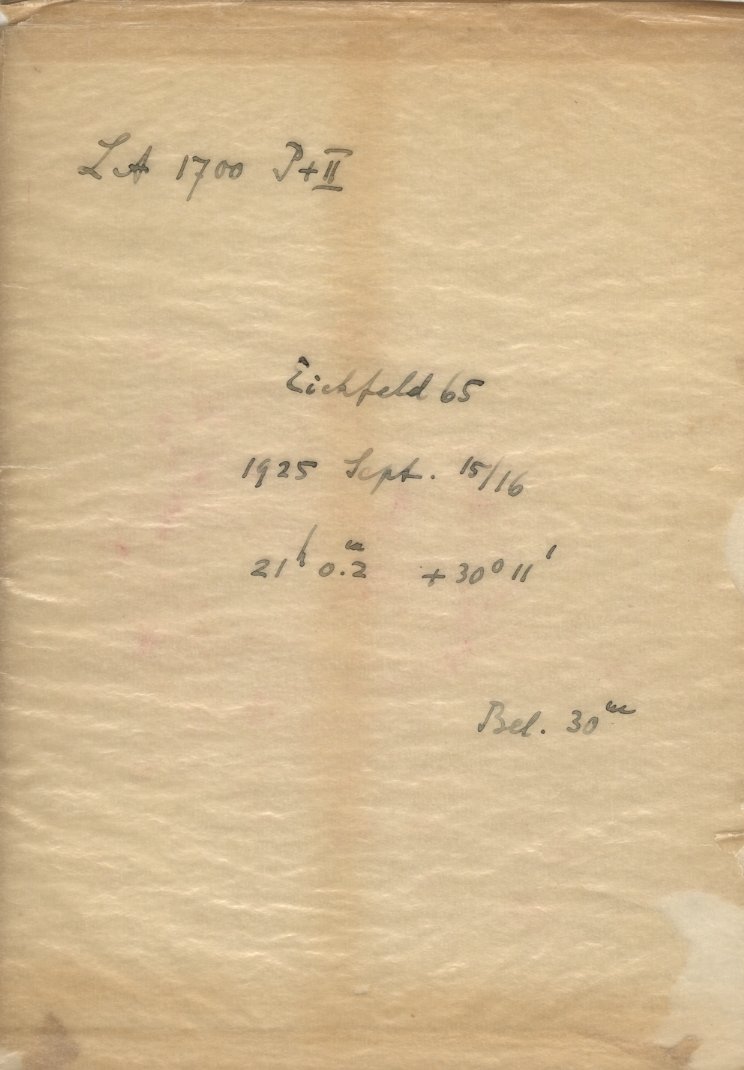 LA 1700 P+II
Eichfeld 65
1925 Sept. 15/16
21ʰ 0.2ᵐ +30° 11'
Bel. 30ᵐ